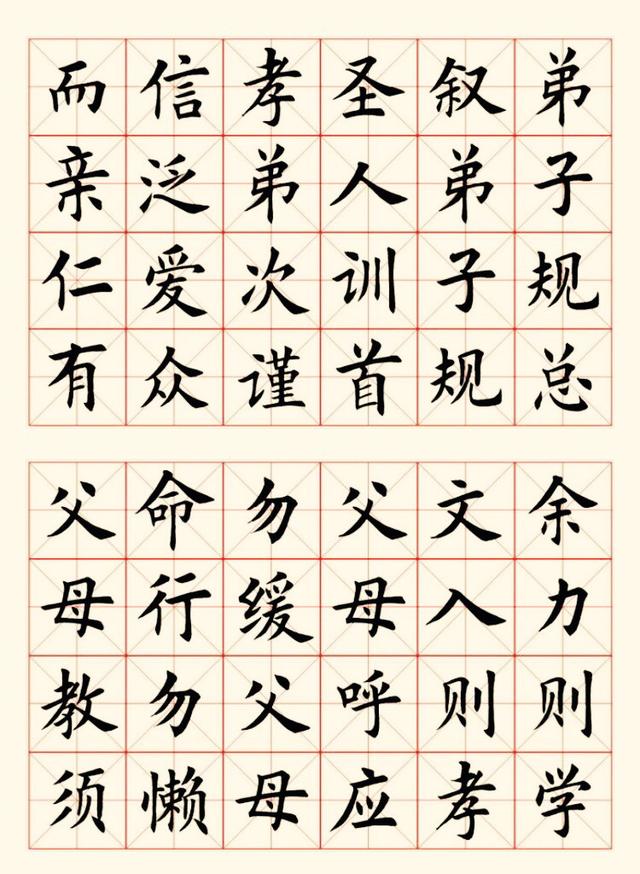 弟子规总
叙弟子规
圣人训首
孝弟次谨
信泛爱众
而亲仁有
余力则学
文入则孝
父母呼应
勿缓父母
命行勿懒
父母教须